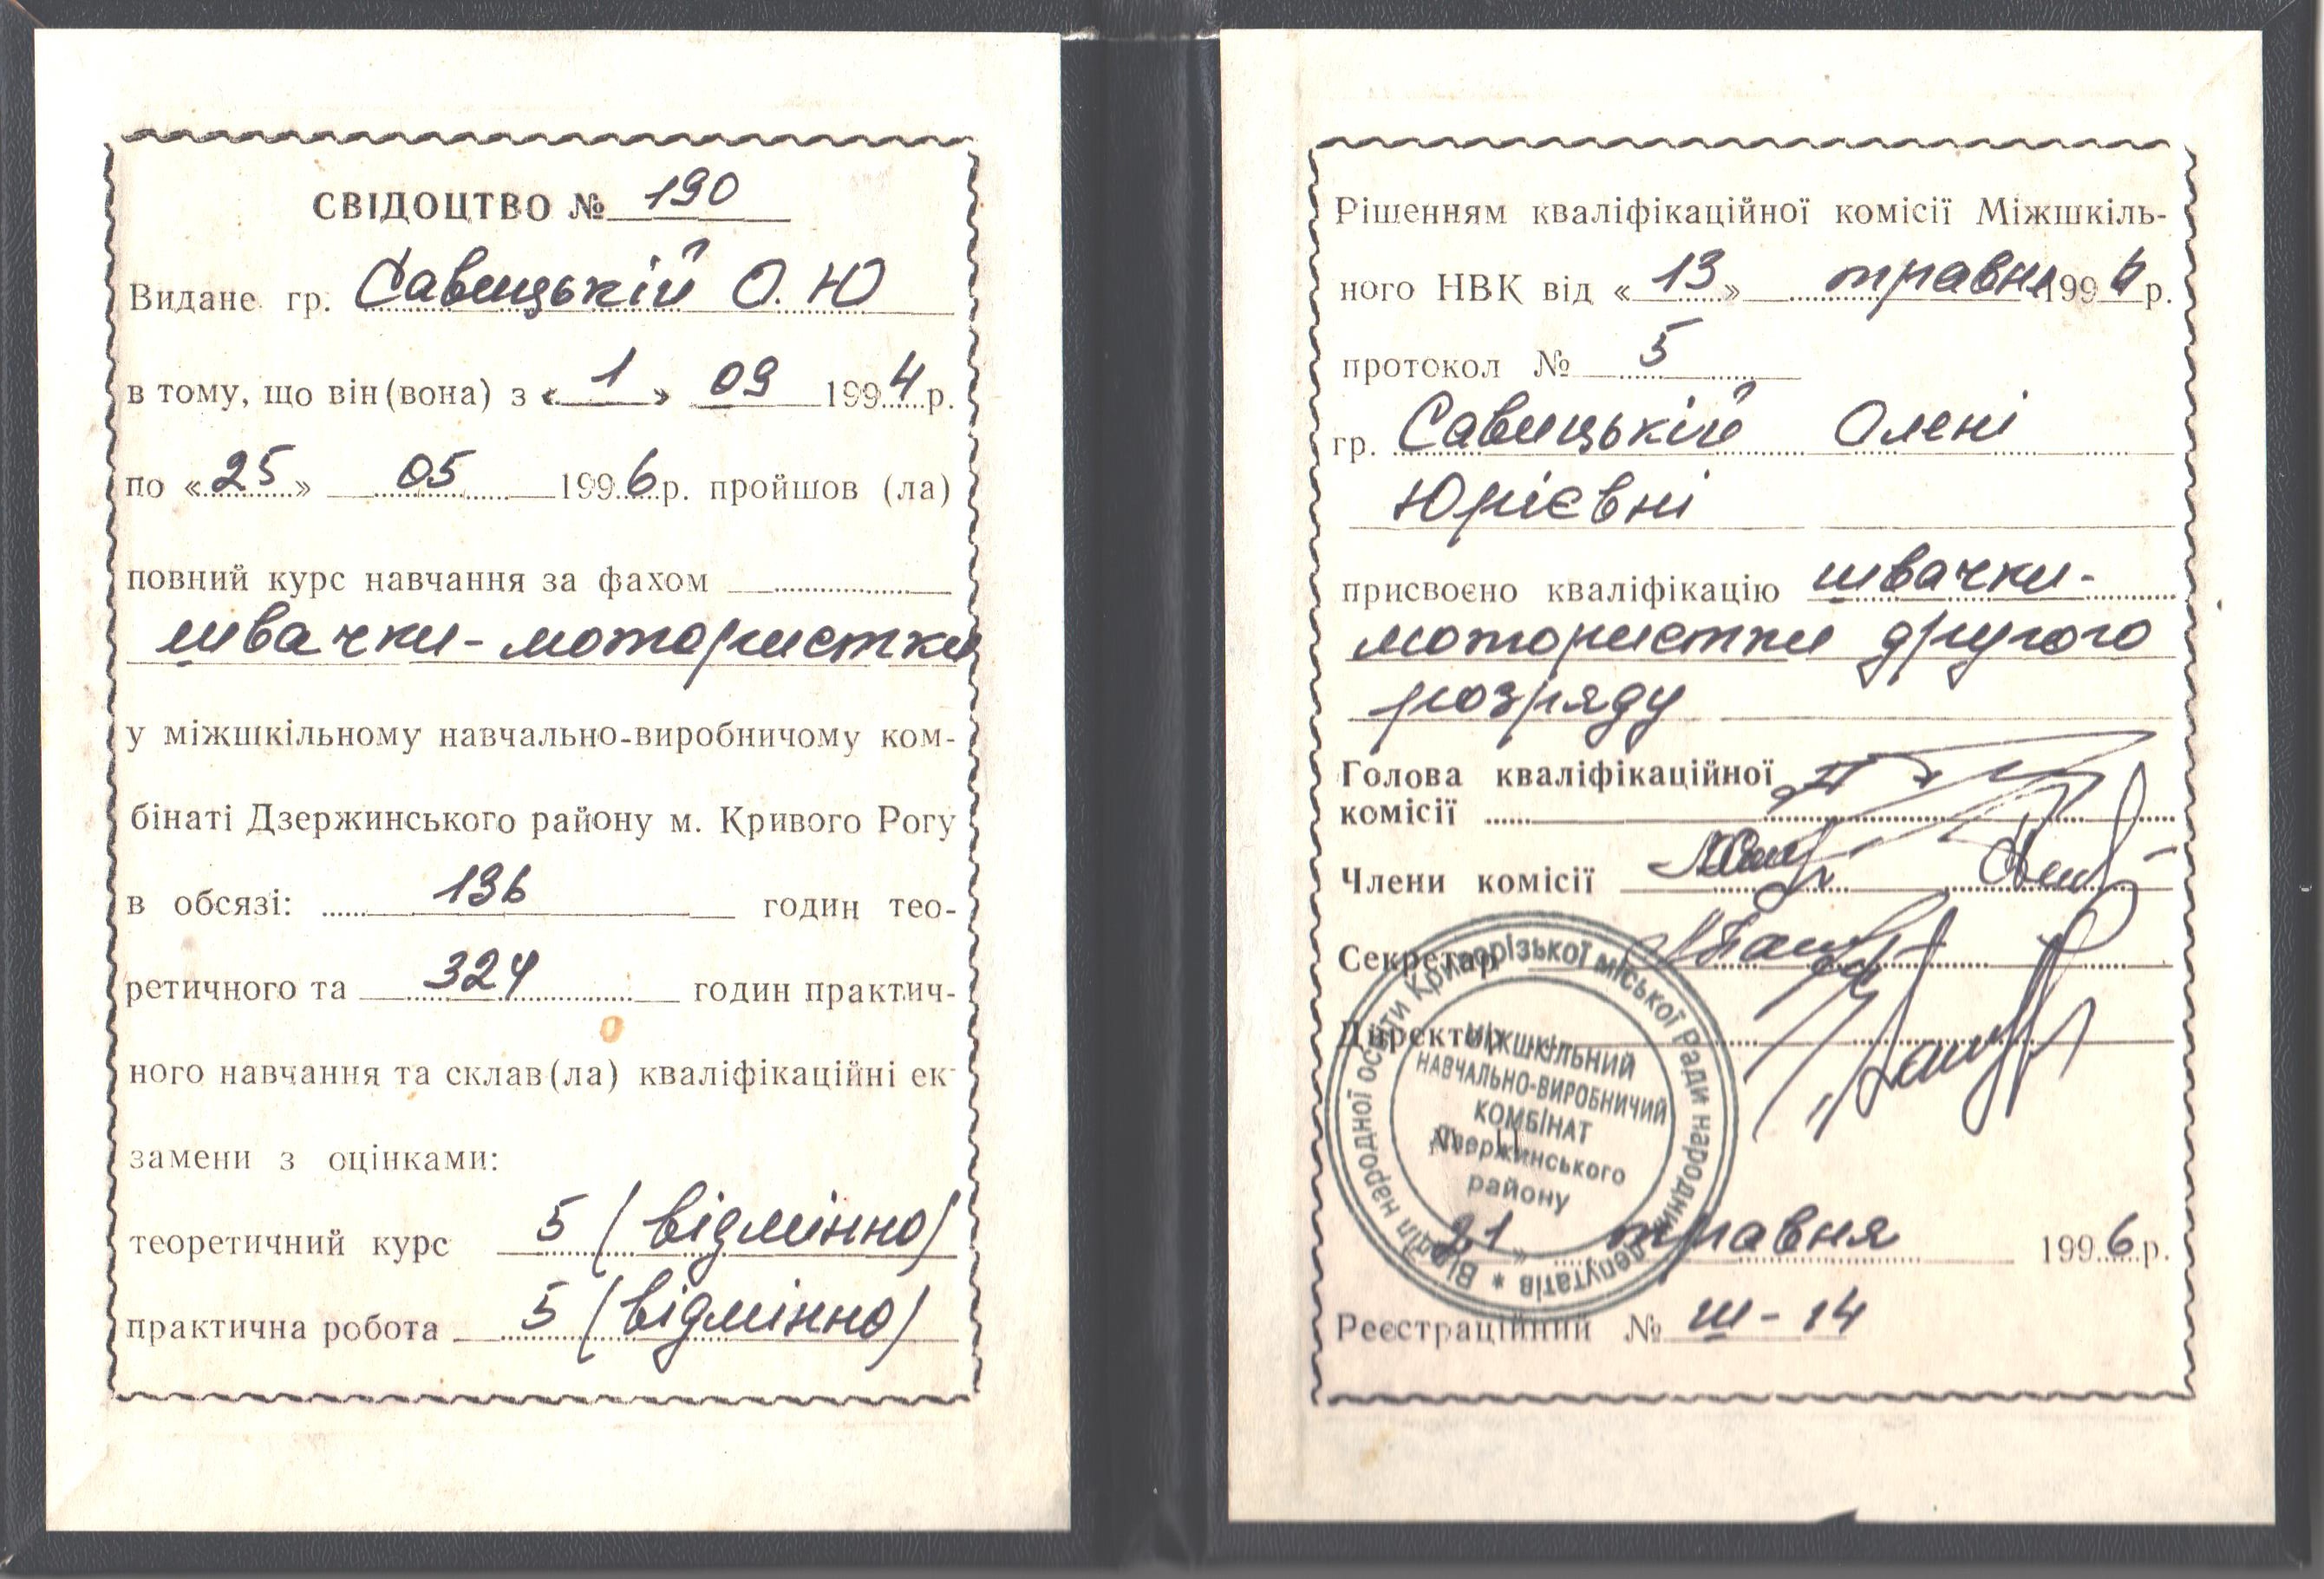 СВІДОЦТВО № 190
Видане гр. Савицькій О.Ю
в тому, що він (вона) з «1» 09 1994 р.
по «25» 05 1996 р. пройшов (ла)
повний курс навчання за фахом
швачки-мотористки
у міжшкільному навчально-виробничому ком-
бінаті Дзержинського району м. Кривого Рогу
в обсязі: 136 годин тео-
ретичного та 324 годин практич-
ного навчання та склав(ла) кваліфікаційні ек-
замени з оцінками:
теоретичний курс 5 (відмінно)
практична робота 5 (відмінно)
Рішенням кваліфікаційної комісії Міжшкіль-
ного НВК від «13» травня 1996 р.
протокол № 5
гр. Савицькій Олені
Юріївні
присвоєно кваліфікацію швачки-
мотористки другого
розряду
Голова кваліфікаційної
комісії
Члени комісії
Секретар
Директор
Відділ народної освіти Криворізької міської Ради народних депутатів *
МІЖШКІЛЬНИЙ
НАВЧАЛЬНО-ВИРОБНИЧИЙ
КОМБІНАТ
Дзержинського
району
21 » травня 1996 р.
Реєстраційний № Ш-14